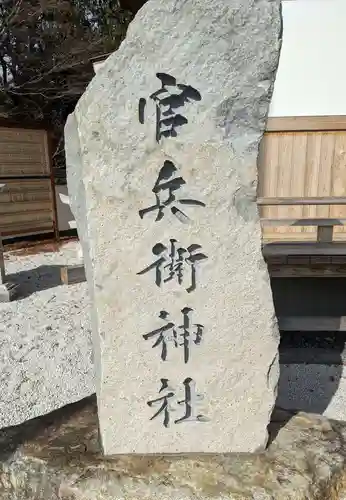 官兵衛神社